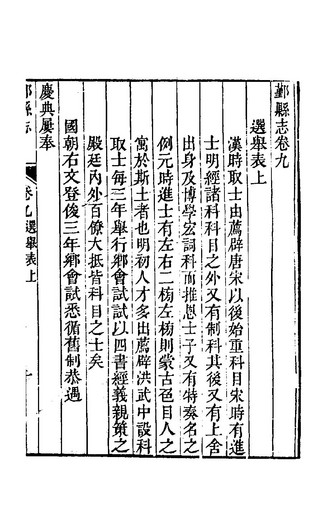 鄞縣志卷九
選舉表上
漢時取士由薦辟唐宋以後始重科目宋時有進
士明經諸科科目之外又有制科其後又有上舍
出身及博學宏詞科而推恩士子又有特奏名之
例元時進士有左右二榜左榜則蒙古色目人之
寓於斯土者也明初人才多出薦辟洪武中設科
取士每三年舉行鄉會試試以四書經義親策之
殿廷內外百僚大抵皆科目之士矣
國朝右文登俊三年鄉會試悉循舊制恭遇
慶典屢奉
鄞縣志
卷九選舉表上
一